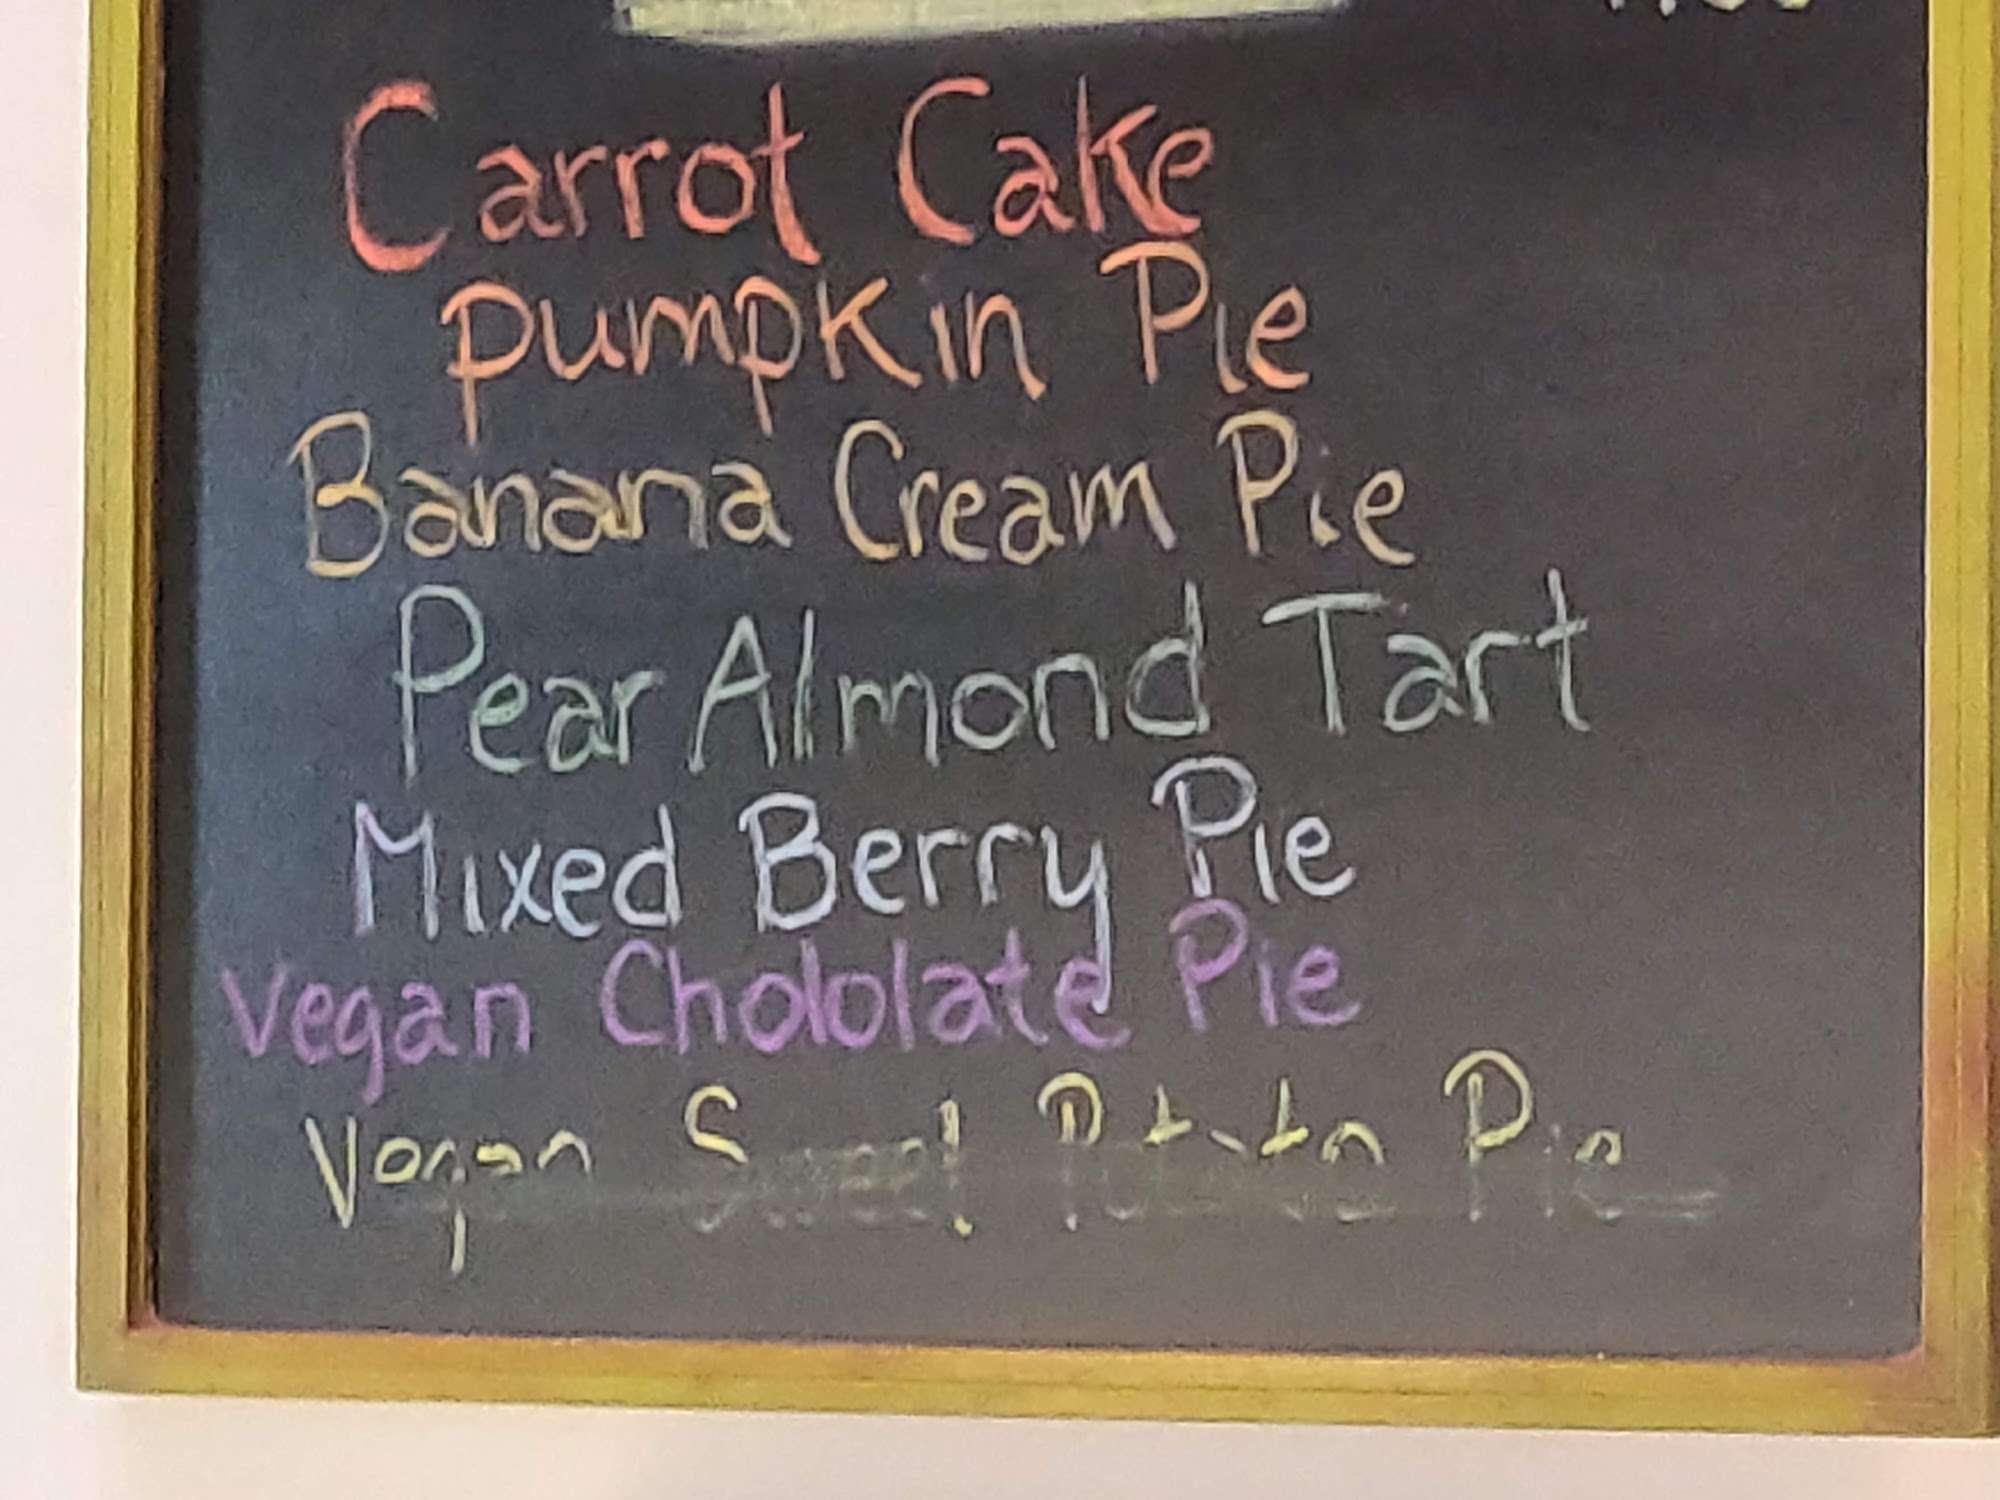 Carrot Cake
Pumpkin Pie
Banana Cream Pie
Pear Almond Tart
Mixed Berry Pie
Vegan Chololate Pie
Vegan Sweet Potato Pie